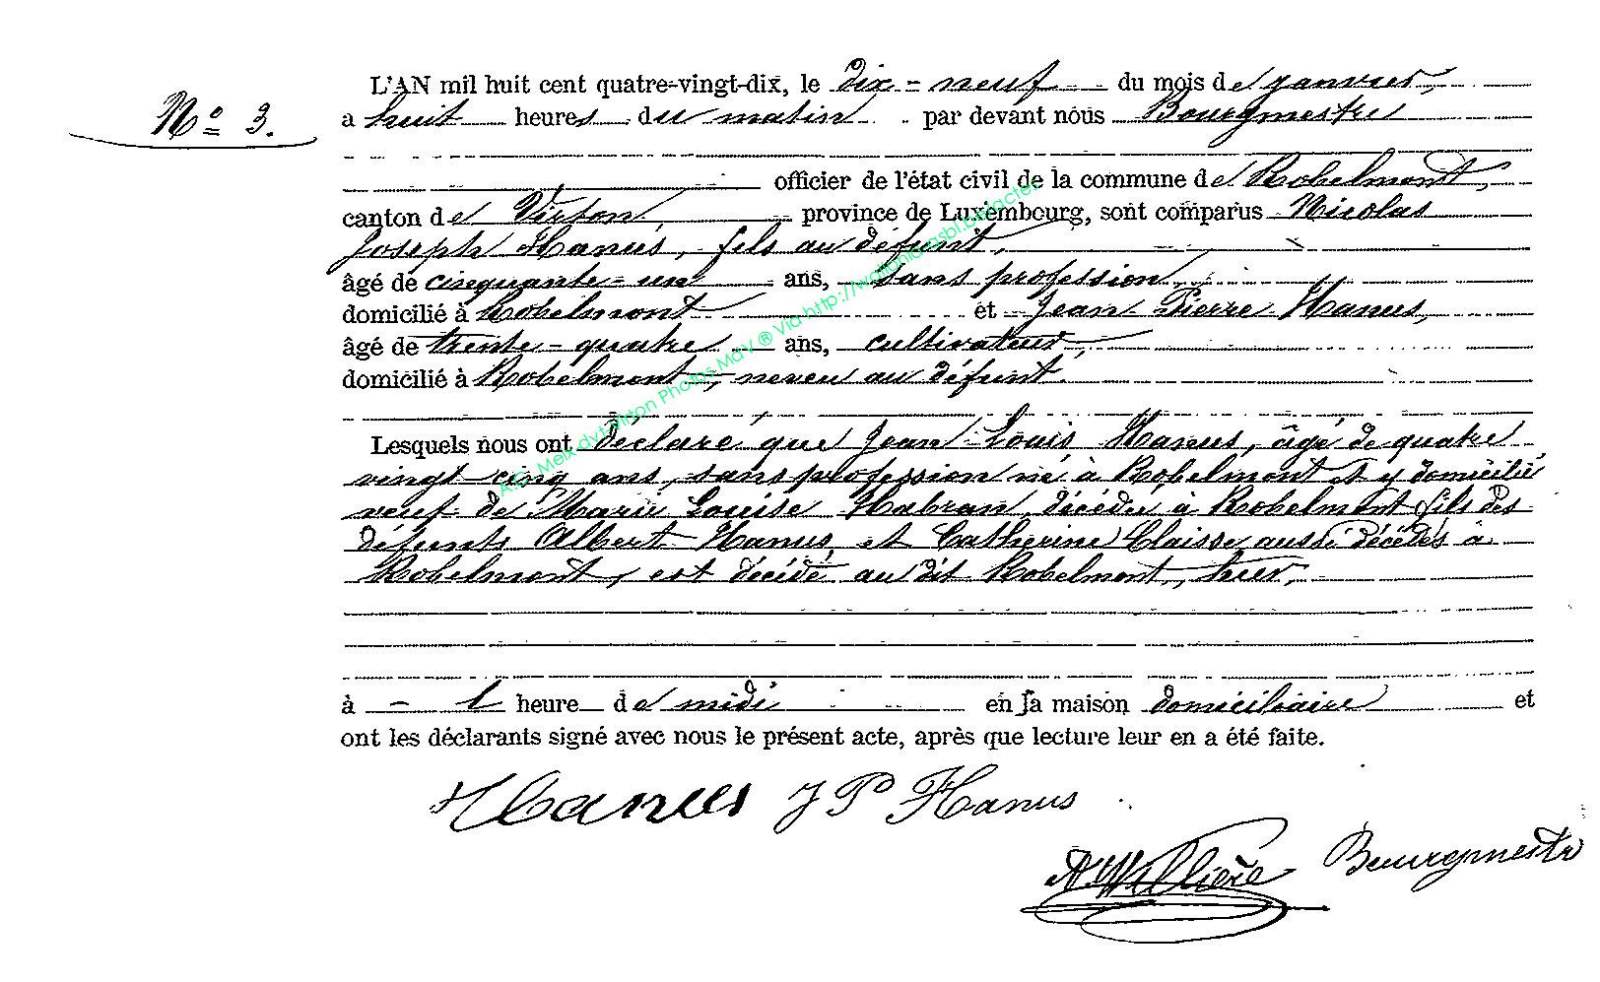 N° 3.
L'AN mil huit cent quatre-vingt-dix, le dix-neuf du mois de janvier,
a huit heures du matin par devant nous Bourgmestre
officier de l'état civil de la commune de Robelmont,
canton de Virton, province de Luxembourg, sont comparus Nicolas
Joseph Hanus, fils au défunt,
âgé de cinquante-un ans, sans profession,
domicilié à Robelmont et Jean Pierre Hanus,
âgé de trente-quatre ans, cultivateur,
domicilié à Robelmont, neveu au défunt.
Lesquels nous ont déclaré que Jean Louis Hanus, âgé de quatre
vingt-cinq ans, sans profession né à Robelmont et y domicilié
veuf de Marie Louise Habran, décédée à Robelmont fils des
défunts Albert Hanus, et Catherine Claisse, aussi décédés à
Robelmont, est décédé au dit Robelmont, hier,
à - 1 heure de midi en sa maison domiciliaire et
ont les déclarants signé avec nous le présent acte, après que lecture leur en a été faite.
Hanus J P Hanus
A. Willière Bourgmestre
A.C. Meix-dvt-Virton Photos MdV ® Via http://wallonia-asbl.be/actes